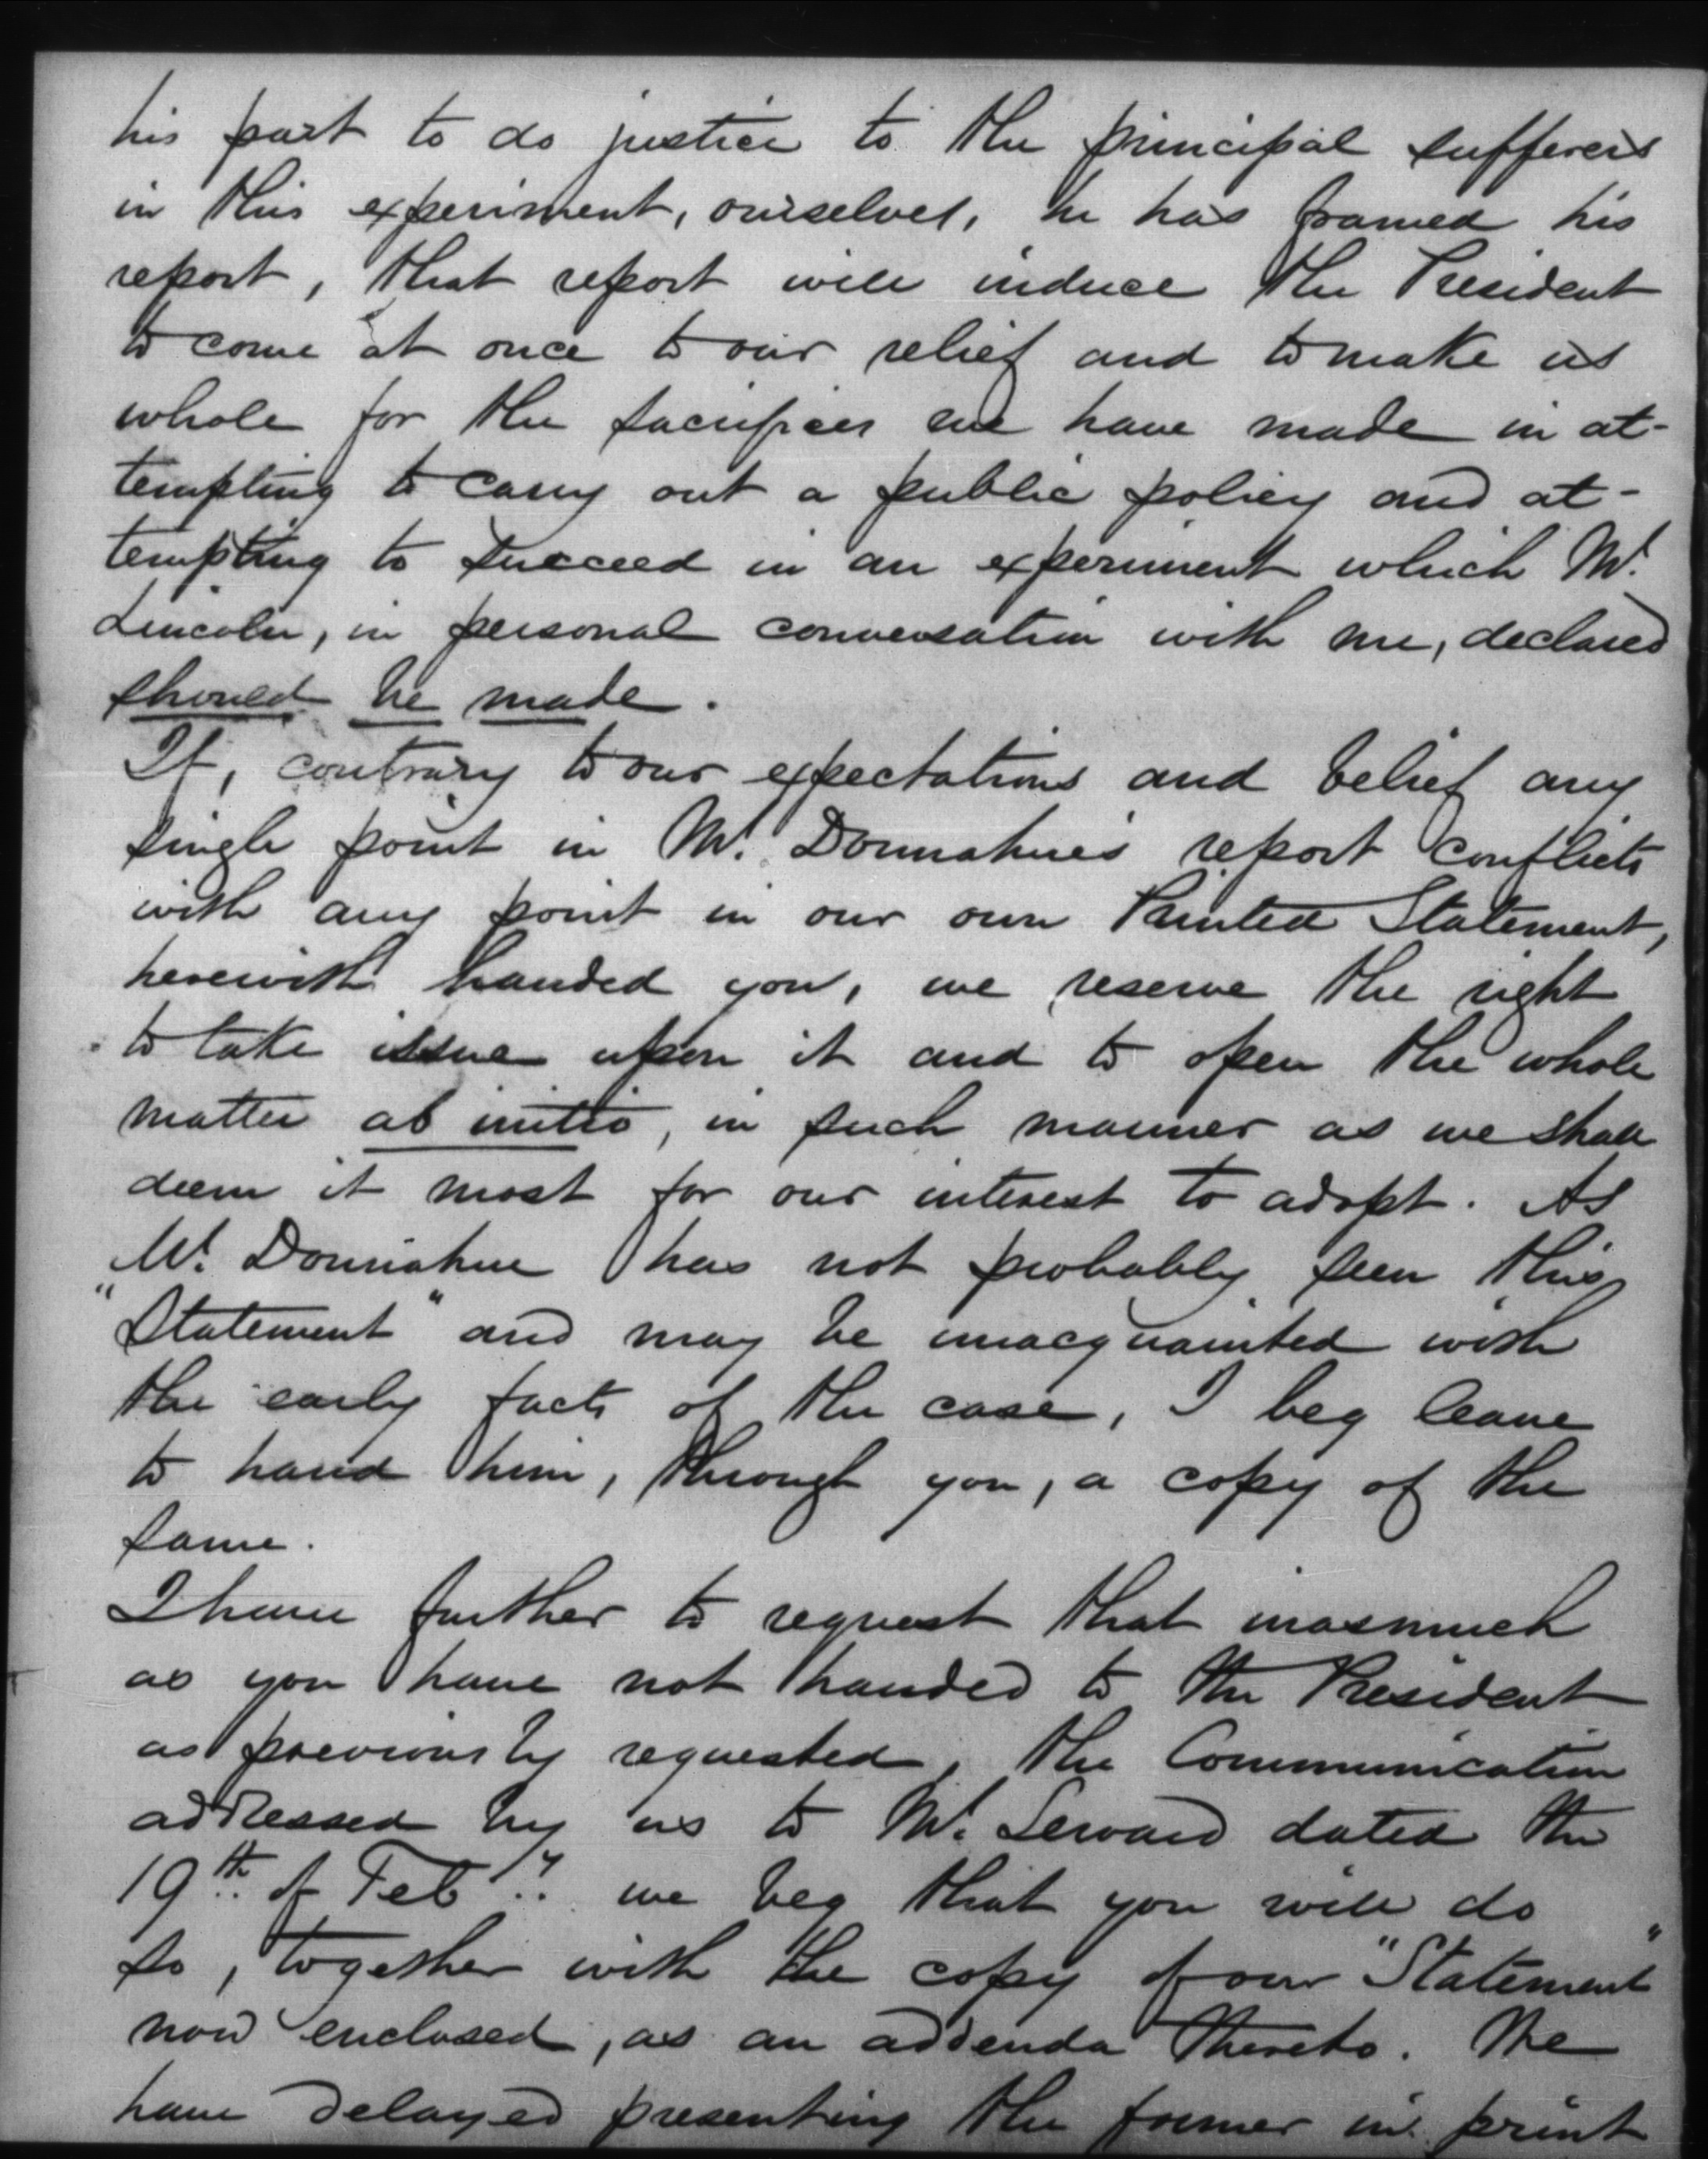 his part to do justice to the principal sufferers
in this experiment, ourselves, he has framed his
report, that report will induce the President
to come at once to our relief and to make us
whole for the sacrifices we have made in at-
tempting to carry out a public policy and at-
tempting to succeed in an experiment which Mr.
Lincoln, in personal conversation with me, declared
should be made.
If, contrary to our expectations and belief any
single point in Mr. Donnahue's report conflicts
with any point in our own Printed Statement,
herewith handed you, we reserve the right
to take issue upon it and to open the whole
matter ab initio, in such manner as we shall
deem it most for our interest to adopt. As
Mr. Donnahue has not probably seen this
"Statement" and may be unacquainted with
the early facts of the case, I beg leave
to hand him, through you, a copy of the
same.
I have further to request that inasmuch
as you have not handed to the President
as previously requested, the Communication
addressed by us to Mr. Seward dated the
19th of Feby. we beg that you will do
so, together with the copy of our "Statement"
now enclosed, as an addenda thereto. We
have delayed presenting the former in print